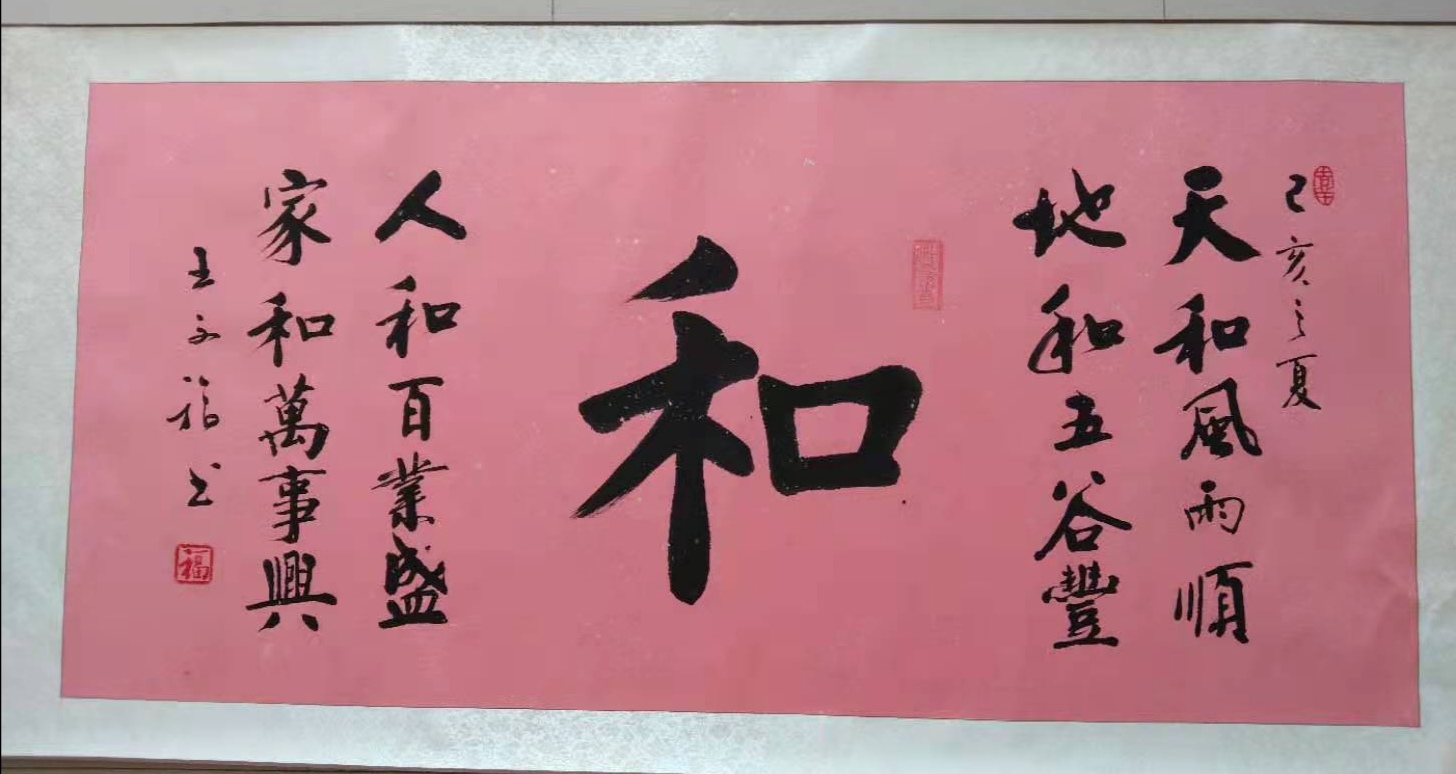 己亥之夏
天和風雨順
地和五谷豐
和
人和百業盛
家和萬事興
王子福书
福